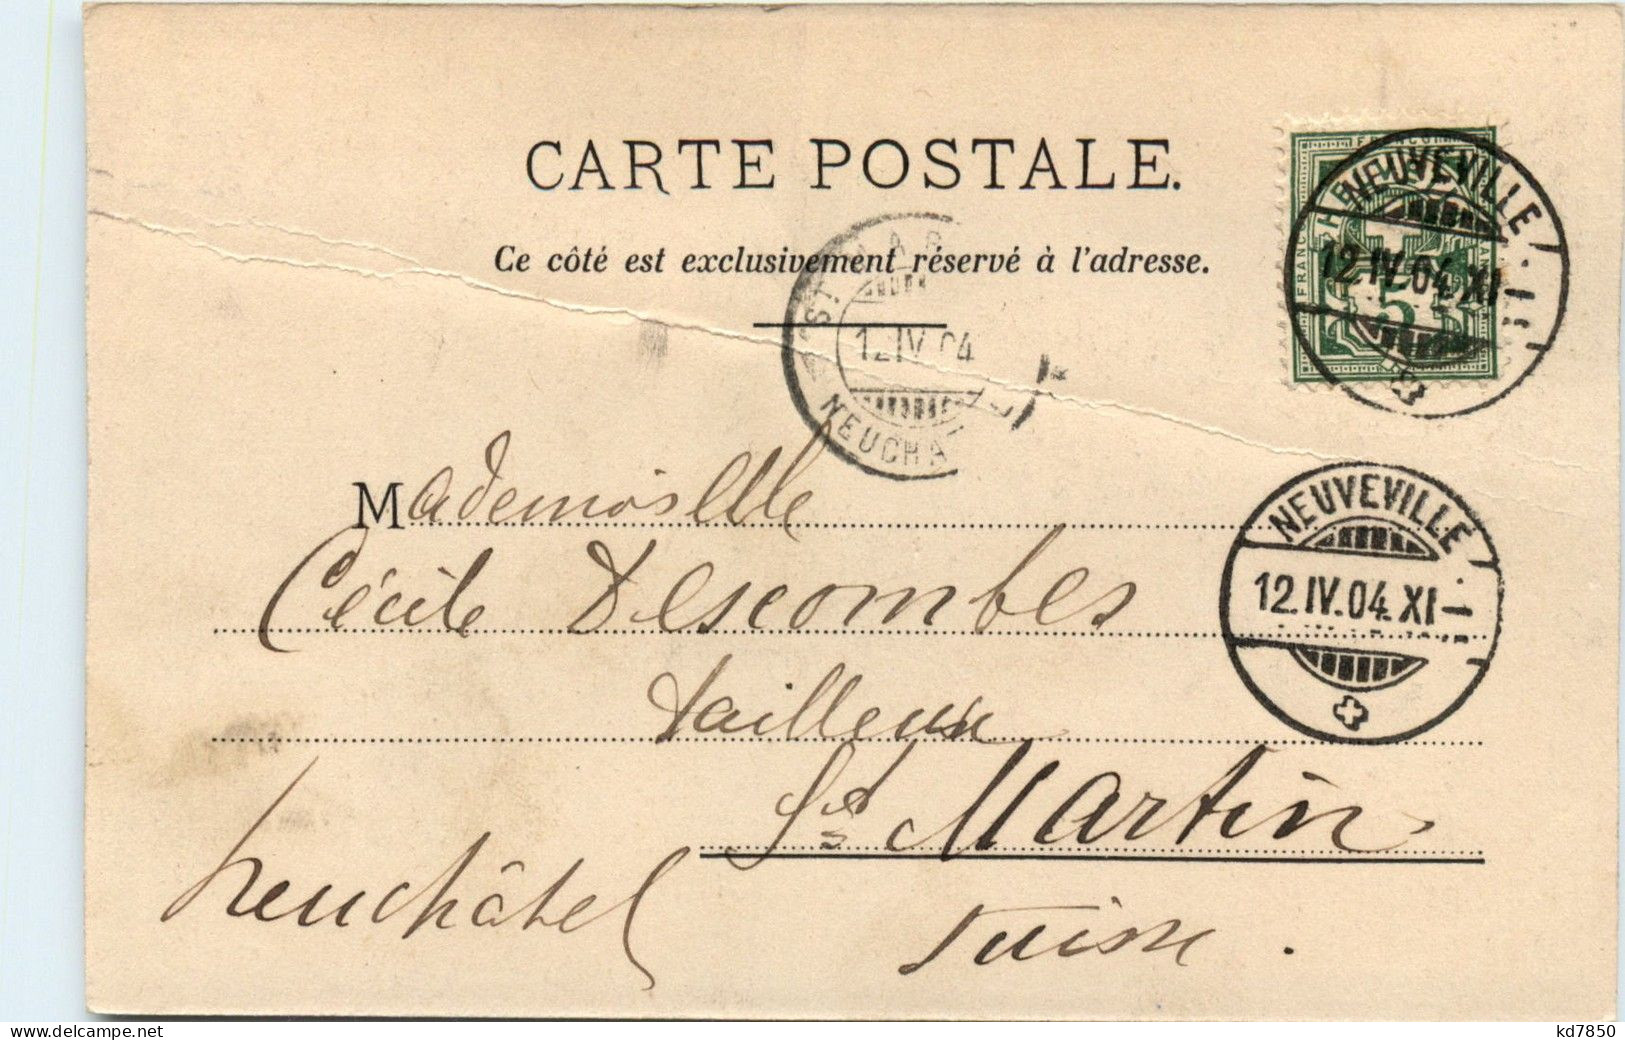 CARTE POSTALE.
Ce côté est exclusivement réservé à l'adresse.
NEUVEVILLE
12.IV.04.XI
FRANCO
5
ST. MAR
12.IV.04
NEUCHA
Mademoiselle
Cécile Descombes
tailleuse
St Martin
Neuchâtel
Suisse.
NEUVEVILLE
12.IV.04.XI
www.delcampe.net
kd7850